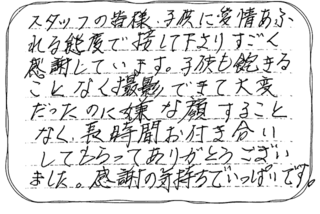 スタッフの皆様、子供に愛情あふ
れる態度で接して下さりすごく
感謝しています。子供も飽きる
ことなく撮影できて大変
だったのに嫌な顔すること
なく、長時間お付き合い
してもらってありがとうござい
ました。感謝の気持ちでいっぱいです。